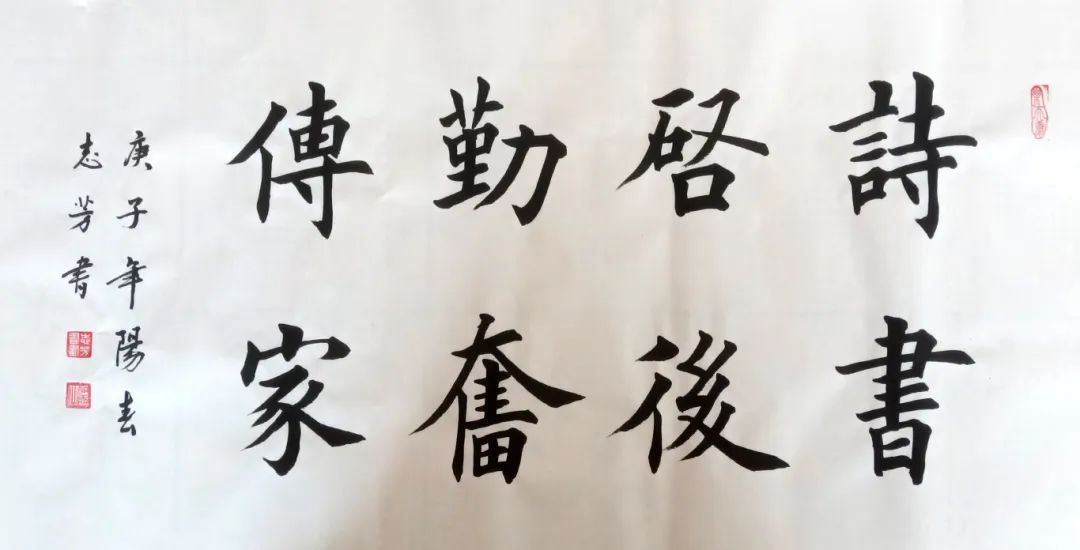 詩書
啓後
勤奮
傳家
庚子年陽春
志芳書